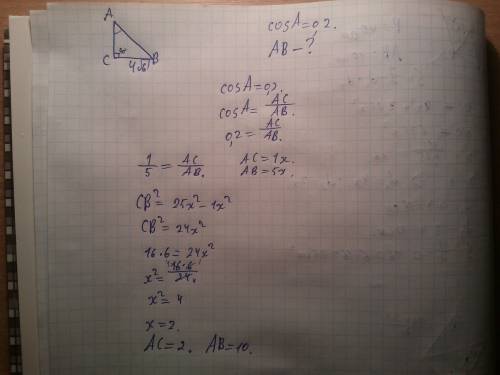 A
C
90
B
4√6
cosA=0,2.
AB-?
cosA=0,2.
cosA= AC/AB.
0,2= AC/AB.
1/5 = AC/AB.
AC=1x.
AB=5x.
CB²= 25x²-1x²
CB²= 24x²
16·6=24x²
x²= 16·6/24.
x²= 4
x=2.
AC=2. AB=10.